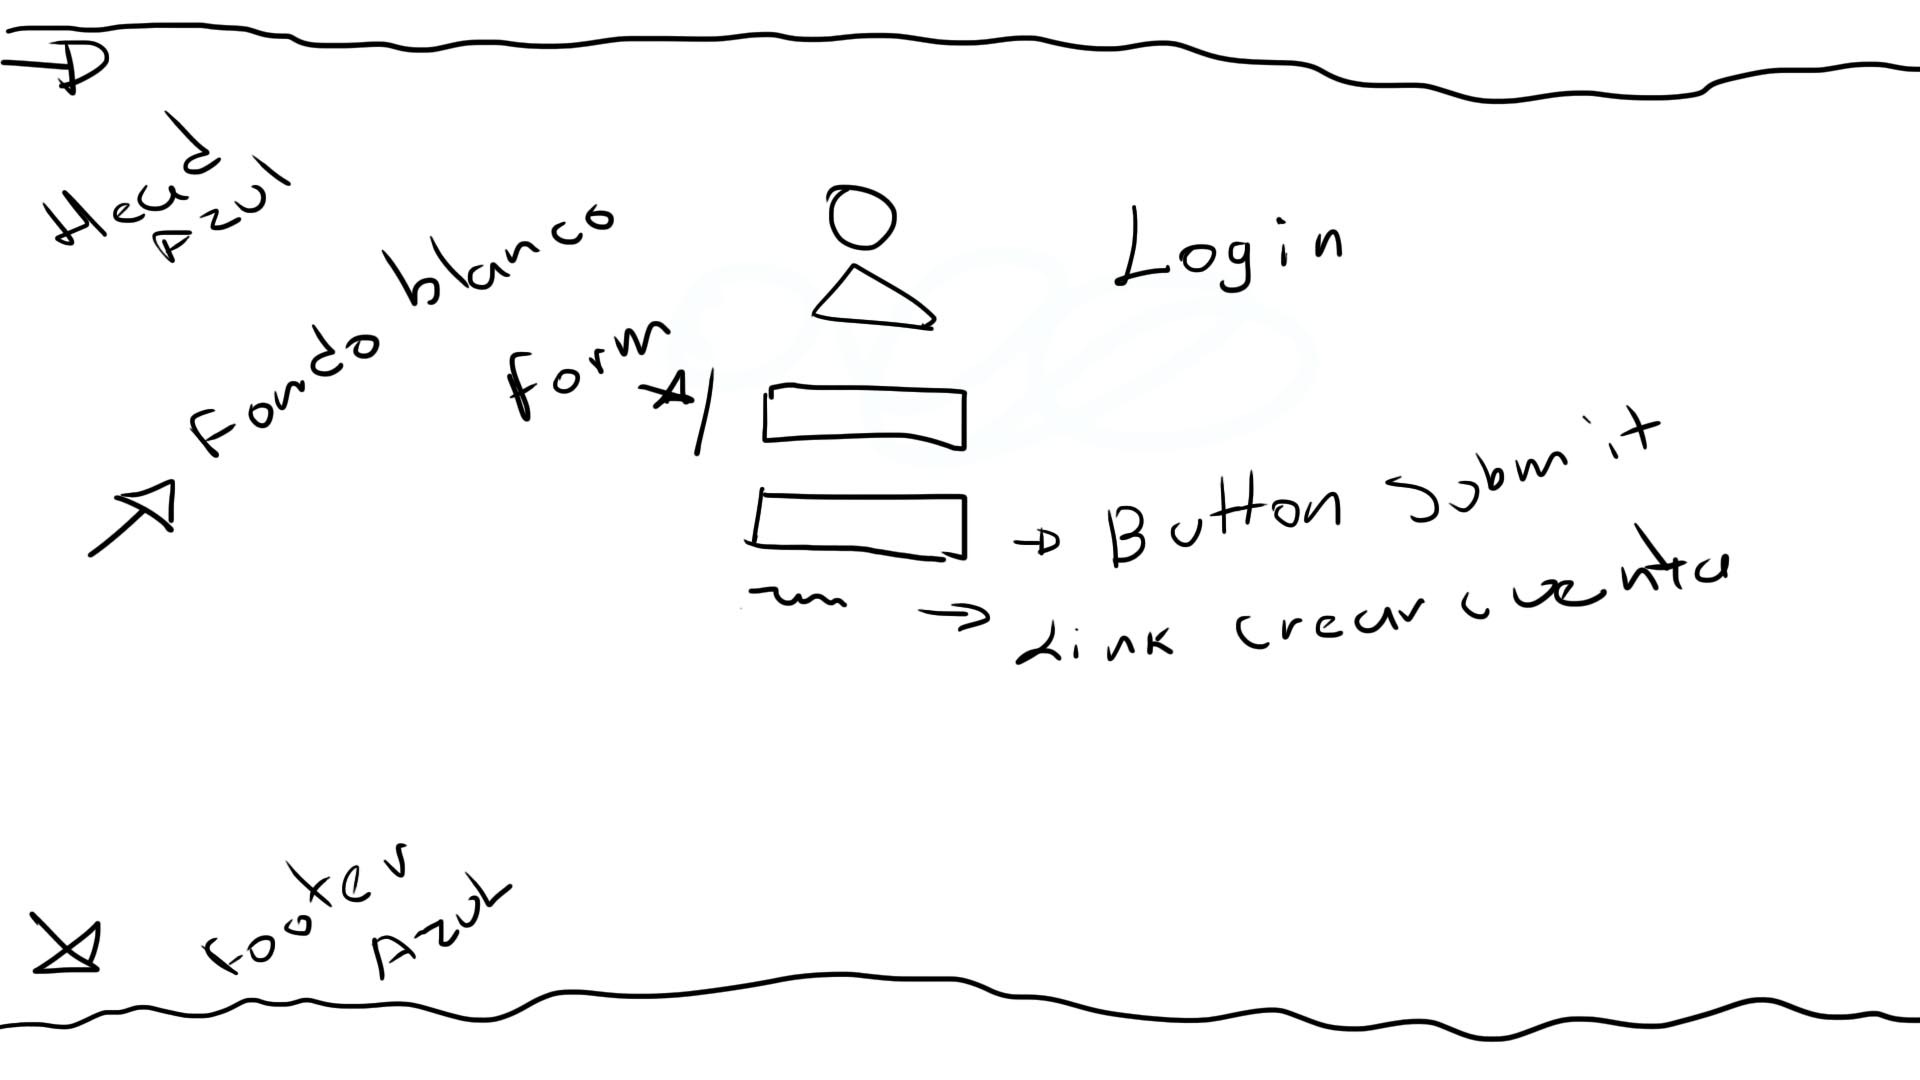 Head
Azul
Fondo blanco
Login
form
Button submit
Link crear cuenta
Footer
Azul